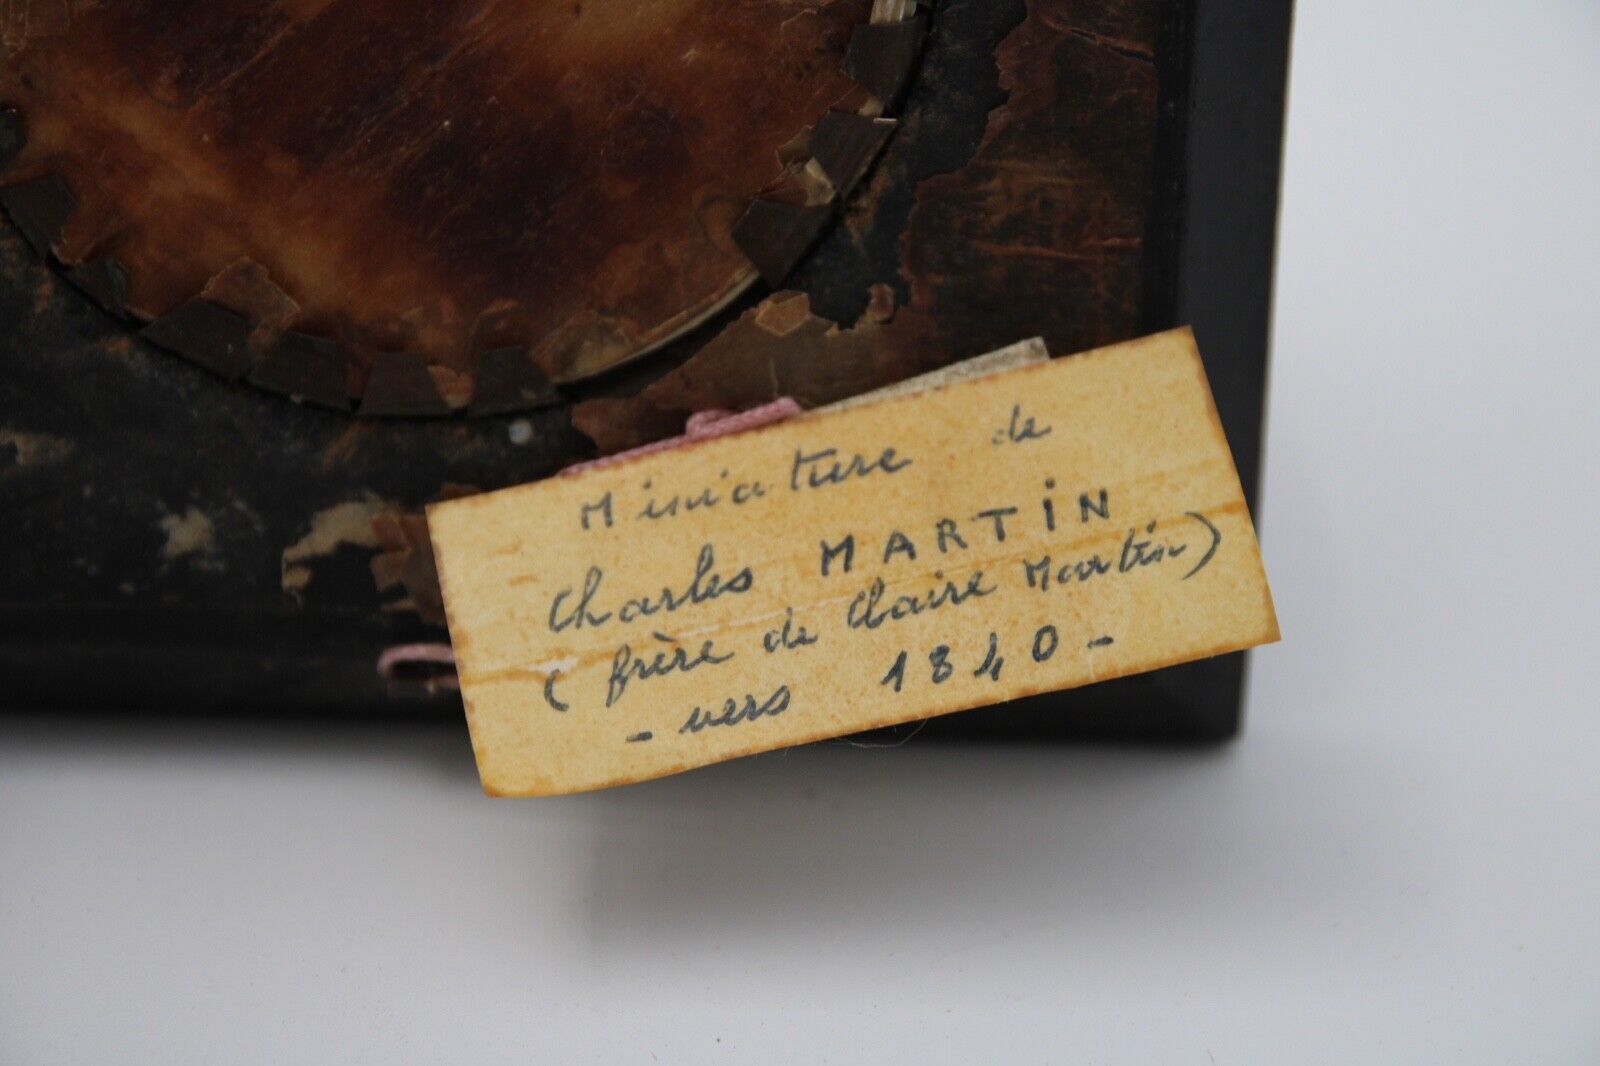 Miniature de
Charles MARTiN
( frère de Claire Martin)
- vers 1840 -